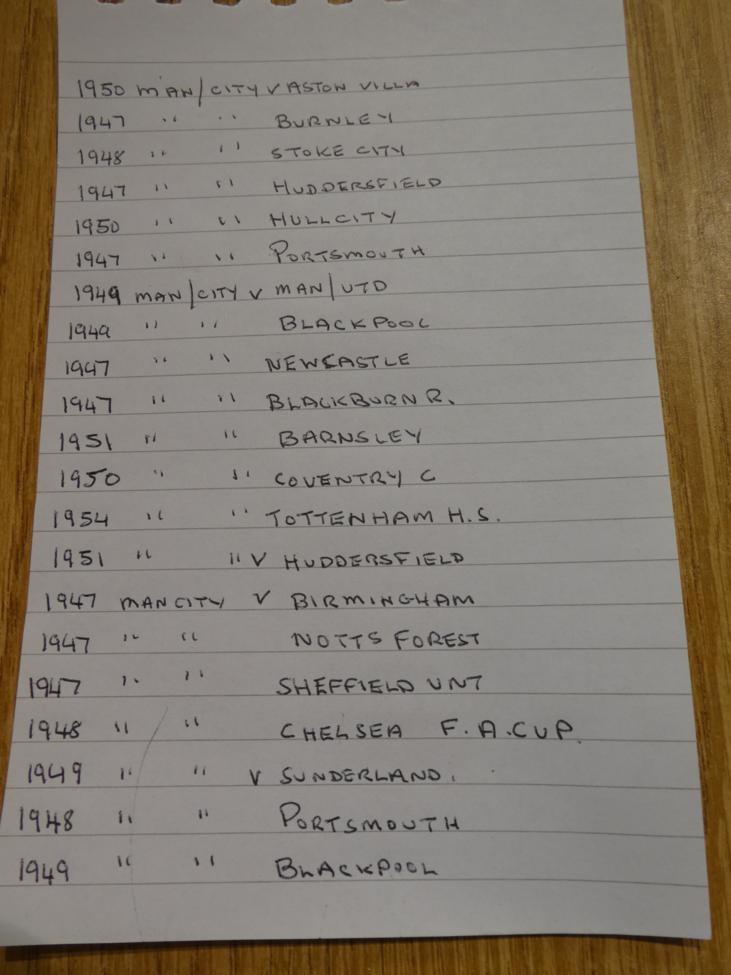 1950 MAN/CITY V ASTON VILLA
1947 " " BURNLEY
1948 " " STOKE CITY
1947 " " HUDDERSFIELD
1950 " " HULL CITY
1947 " " PORTSMOUTH
1949 MAN/CITY V MAN/UTD
1949 " " BLACKPOOL
1947 " " NEWCASTLE
1947 " " BLACKBURN R.
1951 " " BARNSLEY
1950 " " COVENTRY C
1954 " " TOTTENHAM H.S.
1951 " " V HUDDERSFIELD
1947 MAN CITY V BIRMINGHAM
1947 " " NOTTS FOREST
1947 " " SHEFFIELD UNT
1948 " " CHELSEA F.A.CUP.
1949 " " V SUNDERLAND.
1948 " " PORTSMOUTH
1949 " " BLACKPOOL